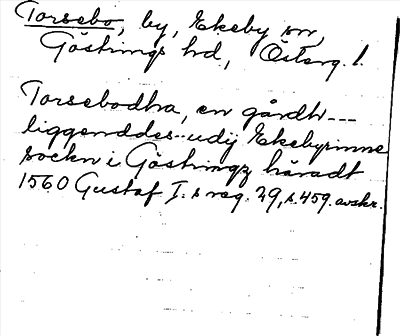 Torsebo, by, Ekeby sn,
Göstrings hd, Österg. l.
Torsebodha, en gårdh---
liggenddes--udij Ekebysinne
sockn i Göstringz häradt
1560 Gustaf I:s reg. 29, s. 459. avskr.